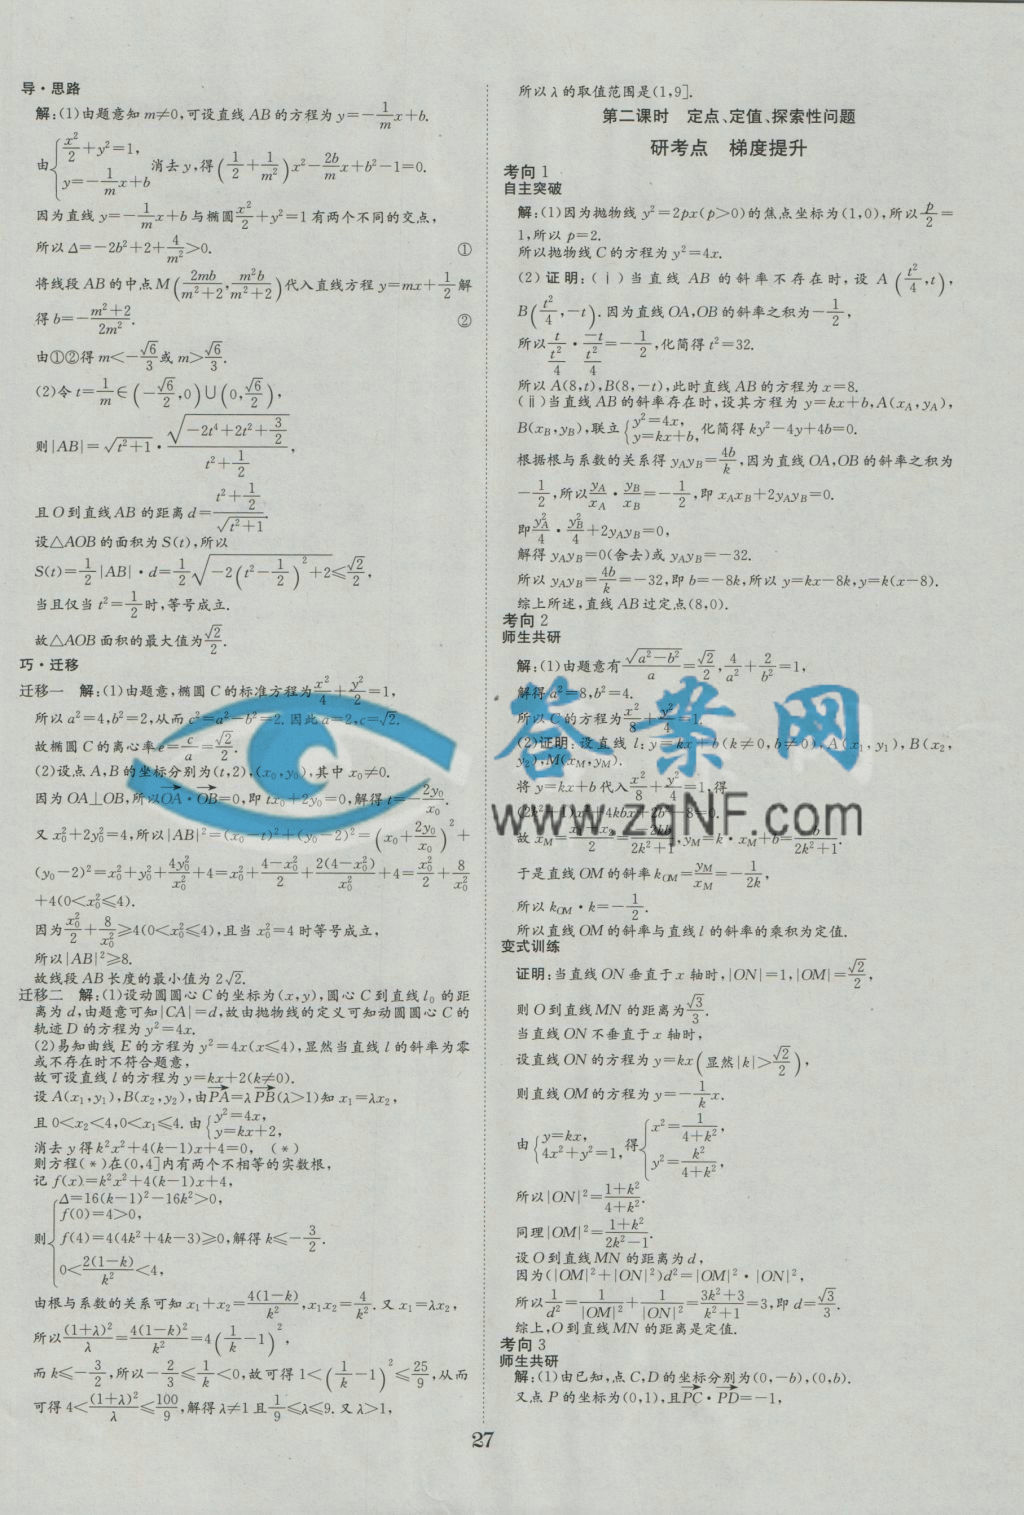 导·思路
解:(1)由题意知 m≠0,可设直线 AB 的方程为 y=-1/m x+b.
由{x²/2+y²=1, y=-1/m x+b 消去 y,得(1/2+1/m²)x²-2b/m x+b²-1=0.
因为直线 y=-1/m x+b 与椭圆 x²/2+y²=1 有两个不同的交点,
所以 Δ=-2b²+2+4/m²>0. ①
将线段 AB 的中点 M(2mb/(m²+2), m²b/(m²+2))代入直线方程 y=mx+1/2 解
得 b=-(m²+2)/(2m²). ②
由①②得 m<-√6/3 或 m>√6/3.
(2)令 t=1/m∈(-√6/2,0)∪(0,√6/2),
则|AB|=√(t²+1)·√(-2t⁴+2t²+3/2)/(t²+1/2),
且 O 到直线 AB 的距离 d=(t²+1/2)/√(t²+1).
设△AOB 的面积为 S(t),所以
S(t)=1/2|AB|·d=1/2√(-2(t²-1/2)²+2)≤√2/2,
当且仅当 t²=1/2 时,等号成立.
故△AOB 面积的最大值为√2/2.
巧·迁移
迁移一 解:(1)由题意,椭圆 C 的标准方程为 x²/4+y²/2=1,
所以 a²=4,b²=2,从而 c²=a²-b²=2.因此 a=2,c=√2.
故椭圆 C 的离心率 e=c/a=√2/2.
(2)设点 A,B 的坐标分别为(t,2),(x₀,y₀),其中 x₀≠0.
因为 OA⊥OB,所以OA·OB=0,即 tx₀+2y₀=0,解得 t=-2y₀/x₀.
又 x₀²+2y₀²=4,所以|AB|²=(x₀-t)²+(y₀-2)²=(x₀+2y₀/x₀)²+
(y₀-2)²=x₀²+y₀²+4y₀²/x₀²+4=x₀²+(4-x₀²)/2+2(4-x₀²)/x₀²+4=x₀²/2+8/x₀²
+4(0<x₀²≤4).
因为 x₀²/2+8/x₀²≥4(0<x₀²≤4),且当 x₀²=4 时等号成立,
所以|AB|²≥8.
故线段 AB 长度的最小值为 2√2.
迁移二 解:(1)设动圆圆心 C 的坐标为(x,y),圆心 C 到直线 l₀ 的距
离为 d,由题意可知|CA|=d,故由抛物线的定义可知动圆圆心 C 的
轨迹 D 的方程为 y²=4x.
(2)易知曲线 E 的方程为 y²=4x(x≤4),显然当直线 l 的斜率为零
或不存在时不符合题意,
故可设直线 l 的方程为 y=kx+2(k≠0).
设 A(x₁,y₁),B(x₂,y₂),由PA=λPB(λ>1)知 x₁=λx₂,
且 0<x₂<4,0<x₁≤4.由{y²=4x, y=kx+2,
消去 y 得 k²x²+4(k-1)x+4=0, (*)
则方程(*)在(0,4]内有两个不相等的实数根,
记 f(x)=k²x²+4(k-1)x+4,
Δ=16(k-1)²-16k²>0,
f(0)=4>0,
则 f(4)=4(4k²+4k-3)≥0,解得 k≤-3/2.
0<2(1-k)/k²<4,
由根与系数的关系可知 x₁+x₂=4(1-k)/k²,x₁x₂=4/k².又 x₁=λx₂,
所以(1+λ)²/λ=4(1-k)²/k²=4(1/k-1)²,
而 k≤-3/2,所以-2/3≤1/k<0,故可得 1<(1/k-1)²≤25/9,从而
可得 4<(1+λ)²/λ≤100/9,解得 λ≠1 且1/9≤λ≤9.又 λ>1,
所以 λ 的取值范围是(1,9].
第二课时 定点、定值、探索性问题
研考点 梯度提升
考向 1
自主突破
解:(1)因为抛物线 y²=2px(p>0)的焦点坐标为(1,0),所以 p/2=
1,所以 p=2.
所以抛物线 C 的方程为 y²=4x.
(2)证明:(ⅰ)当直线 AB 的斜率不存在时,设 A(t²/4,t),
B(t²/4,-t).因为直线 OA,OB 的斜率之积为-1/2,
所以 t/(t²/4)·-t/(t²/4)=-1/2,化简得 t²=32.
所以 A(8,t),B(8,-t),此时直线 AB 的方程为 x=8.
(ⅱ)当直线 AB 的斜率存在时,设其方程为 y=kx+b,A(x_A,y_A),
B(x_B,y_B),联立{y²=4x, y=kx+b, 化简得 ky²-4y+4b=0.
根据根与系数的关系得 y_Ay_B=4b/k,因为直线 OA,OB 的斜率之积为
-1/2,所以 y_A/x_A·y_B/x_B=-1/2,即 x_Ax_B+2y_Ay_B=0.
即 y_A²/4·y_B²/4+2y_Ay_B=0,
解得 y_Ay_B=0(舍去)或 y_Ay_B=-32.
所以 y_Ay_B=4b/k=-32,即 b=-8k,所以 y=kx-8k,y=k(x-8).
综上所述,直线 AB 过定点(8,0).
考向 2
师生共研
解:(1)由题意有√(a²-b²)/a=√2/2,4/a²+2/b²=1,
解得 a²=8,b²=4.
所以 C 的方程为 x²/8+y²/4=1.
(2)证明:设直线 l:y=kx+b(k≠0,b≠0),A(x₁,y₁),B(x₂,
y₂),M(x_M,y_M).
将 y=kx+b 代入 x²/8+y²/4=1,得
(2k²+1)x²+4kbx+2b²-8=0.
故 x_M=(x₁+x₂)/2=-2kb/(2k²+1),y_M=k·x_M+b=b/(2k²+1).
于是直线 OM 的斜率 k_OM=y_M/x_M=-1/2k,
所以 k_OM·k=-1/2.
所以直线 OM 的斜率与直线 l 的斜率的乘积为定值.
变式训练
证明:当直线 ON 垂直于 x 轴时,|ON|=1,|OM|=√2/2,
则 O 到直线 MN 的距离为√3/3.
当直线 ON 不垂直于 x 轴时,
设直线 ON 的方程为 y=kx(显然|k|>√2/2),
则直线 OM 的方程为 y=-1/k x.
由{y=kx, 4x²+y²=1, 得{x²=1/(4+k²), y²=k²/(4+k²),
所以|ON|²=(1+k²)/(4+k²).
同理|OM|²=(1+k²)/(2k²-1).
设 O 到直线 MN 的距离为 d,
因为(|OM|²+|ON|²)d²=|OM|²·|ON|²,
所以 1/d²=1/|OM|²+1/|ON|²=(3k²+3)/(k²+1)=3,即 d=√3/3.
综上,O 到直线 MN 的距离是定值.
考向 3
师生共研
解:(1)由已知,点 C,D 的坐标分别为(0,-b),(0,b).
又点 P 的坐标为(0,1),且PC·PD=-1,
27
答案网
www.zqNF.com